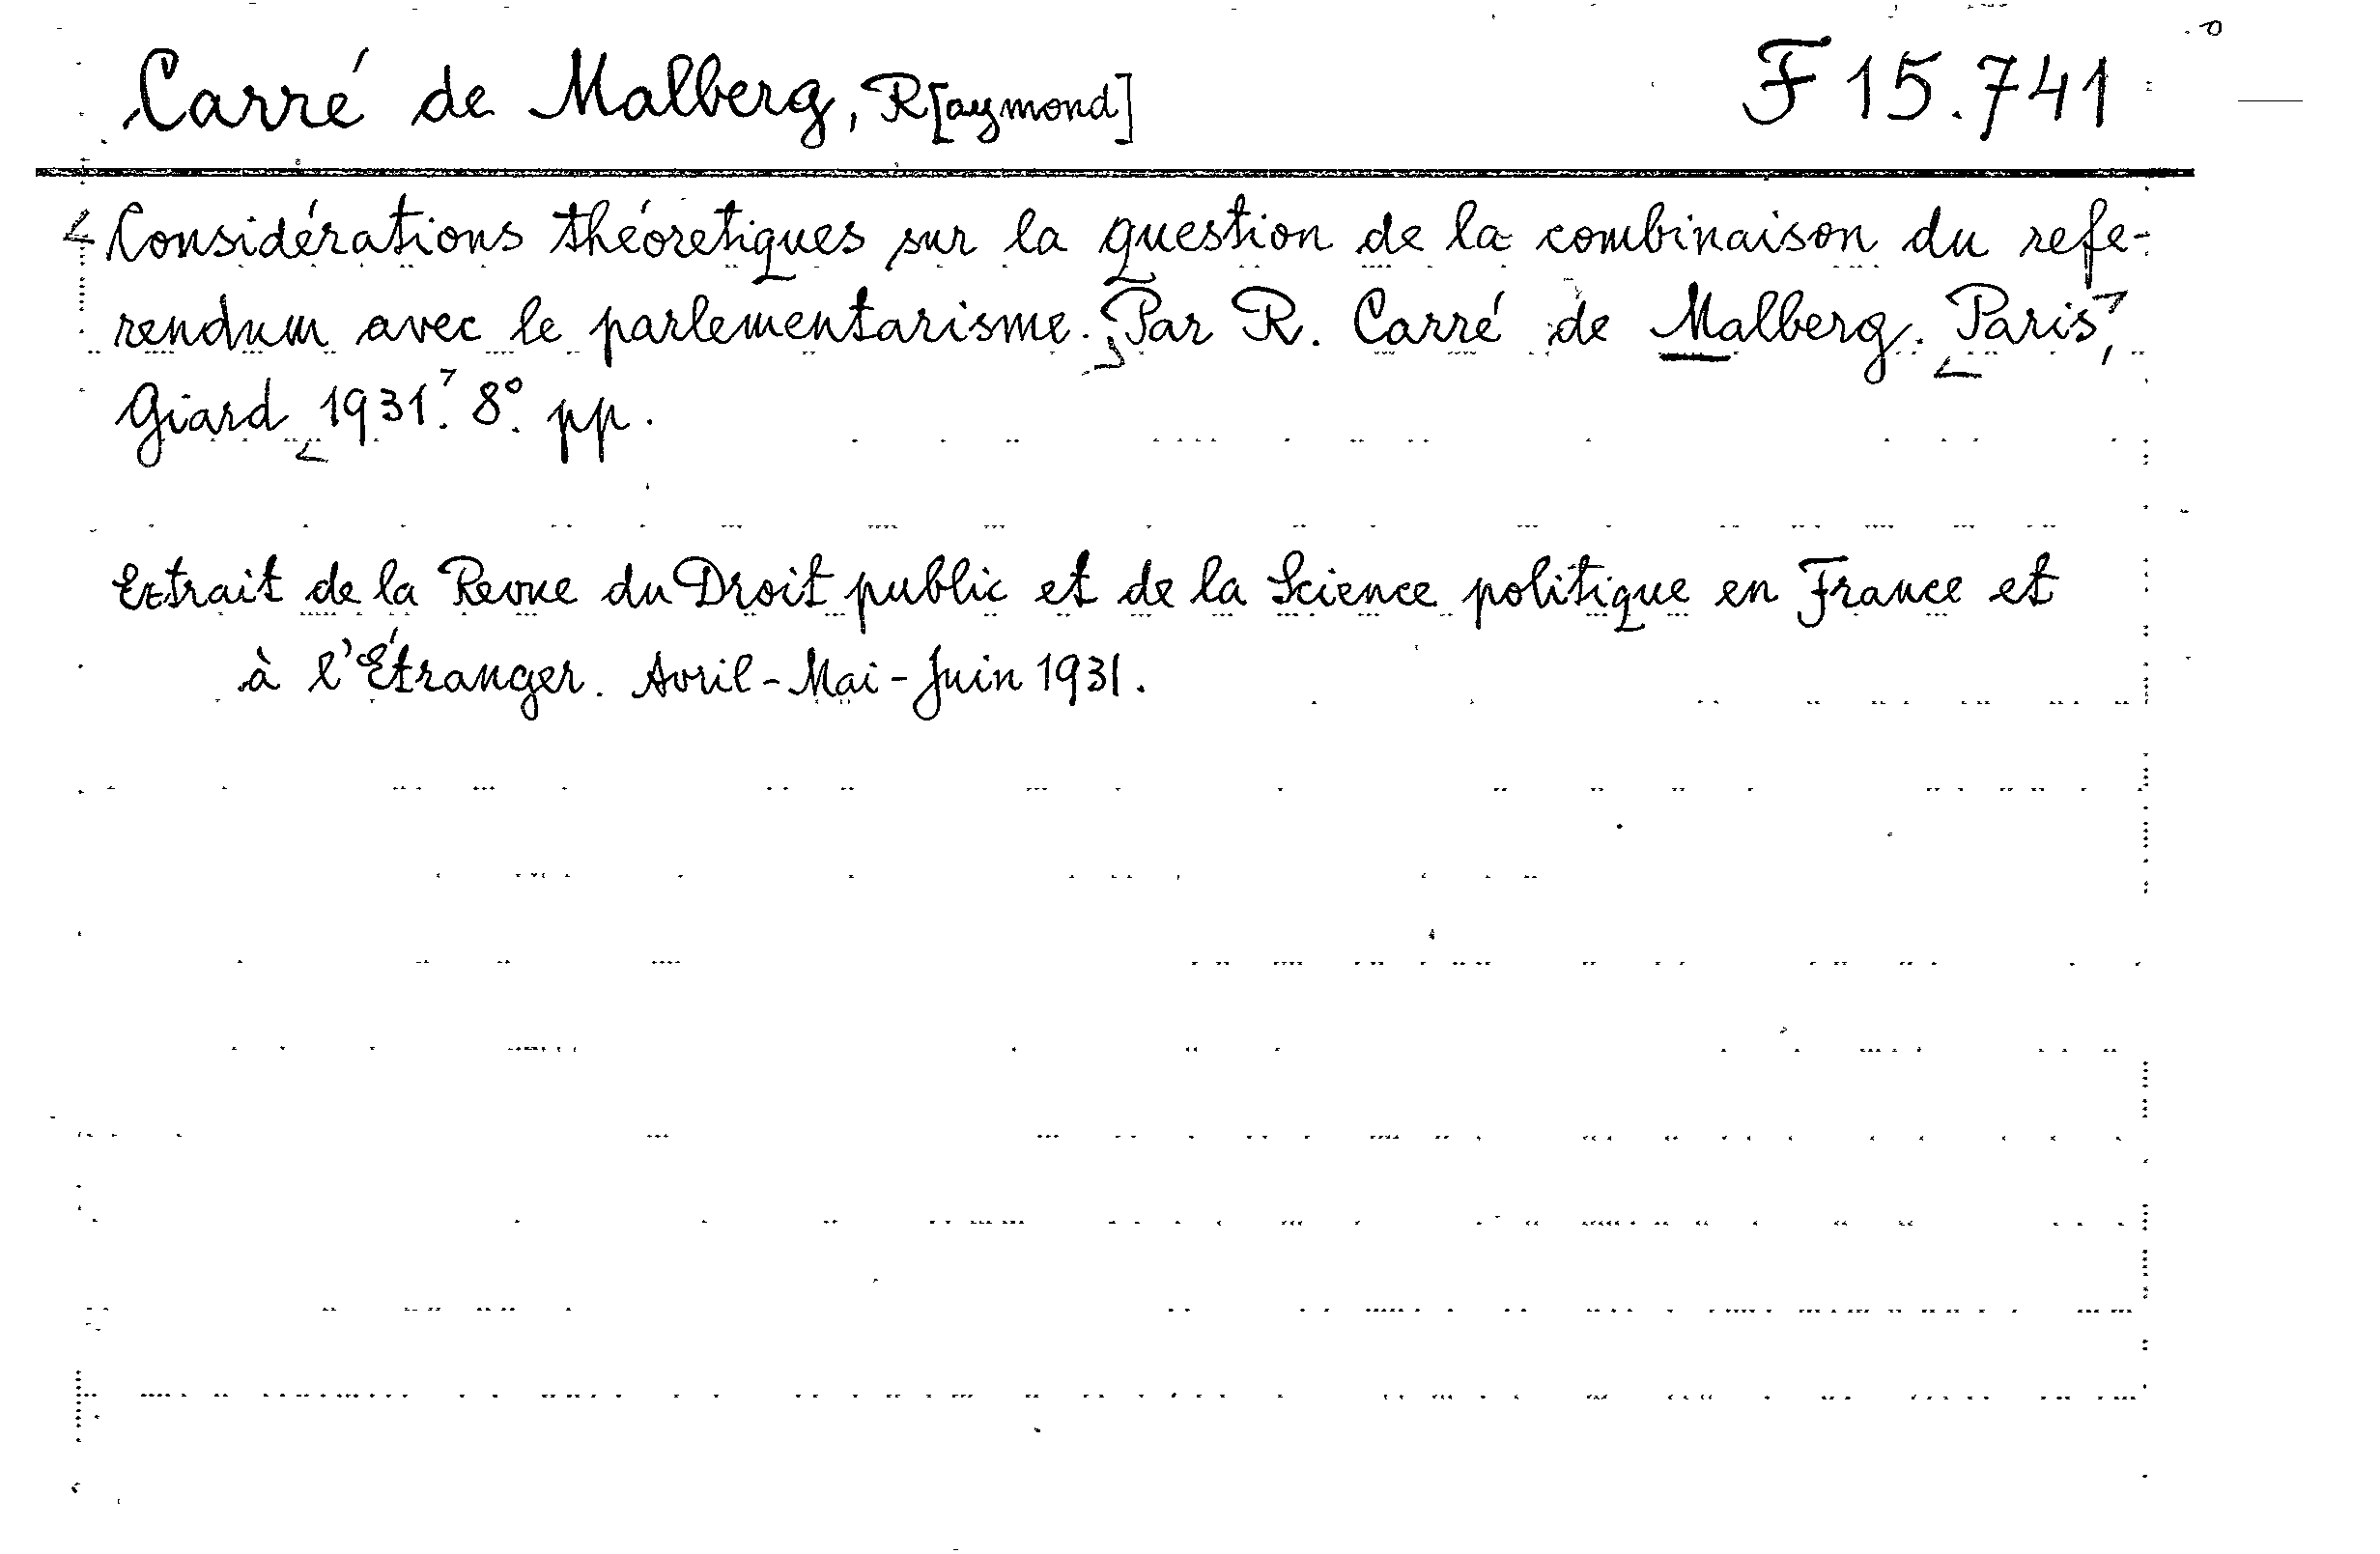 Carré de Malberg, R[aymond] F 15.741
Considérations théoretiques sur la question de la combinaison du refe-
rendum avec le parlementarisme. Par R. Carré de Malberg. Paris,
Giard 1931. 8°. pp.
Extrait de la Revue du Droit public et de la Science politique en France et
à l'Étranger. Avril-Mai-Juin 1931.